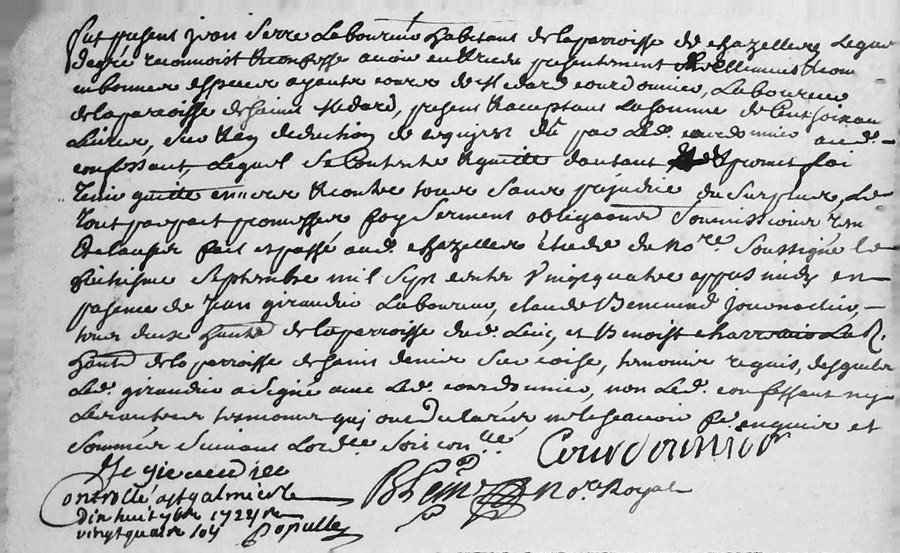 fut présent jean Serre Laboureur habitant de la parroisse de chazelles Lequel
degré reconnoit & confesse avoir eu & receu présentement & réellement & com
en bonnes espèces ayants cours de Médard courdonnier, Laboureur
de la paroisse de saint Médard, présent & acceptant La somme de cent soixan
Livres, en déduction de ce qui est dû par Led. courdonnier aud.
confessant, Lequel se Contente & quitte d'autant & promet faire
tenir quitte envers & contre tous sans préjudice du surplus, Le
tout par pact promesses foy serment obligaõns soumissions ren
& clauses fait et passé aud. chazelles étude du nore. Soussigné le
huitieme Septembre mil sept cents vingt quatre apprès midy en
présence de Jean giraudie Laboureur, claude journallier,
tous deux habts. de la parroisse dud. Lieu, et Benoist Lab.
habts. de la parroisse de saint denis sur coise, témoins requis, desquels
Led. giraudie a signé avec Led. courdonnier, non Led. confessant ny
Les autres témoins qui ont déclarés ne le sçavoir de ce enquis et
sommés suivant Lordce. soit conllé.
Courdonnier
Controllé a st galmier le
dix huit 7bre 1724 re
vingt quatre sols Populle
Nore. Royal